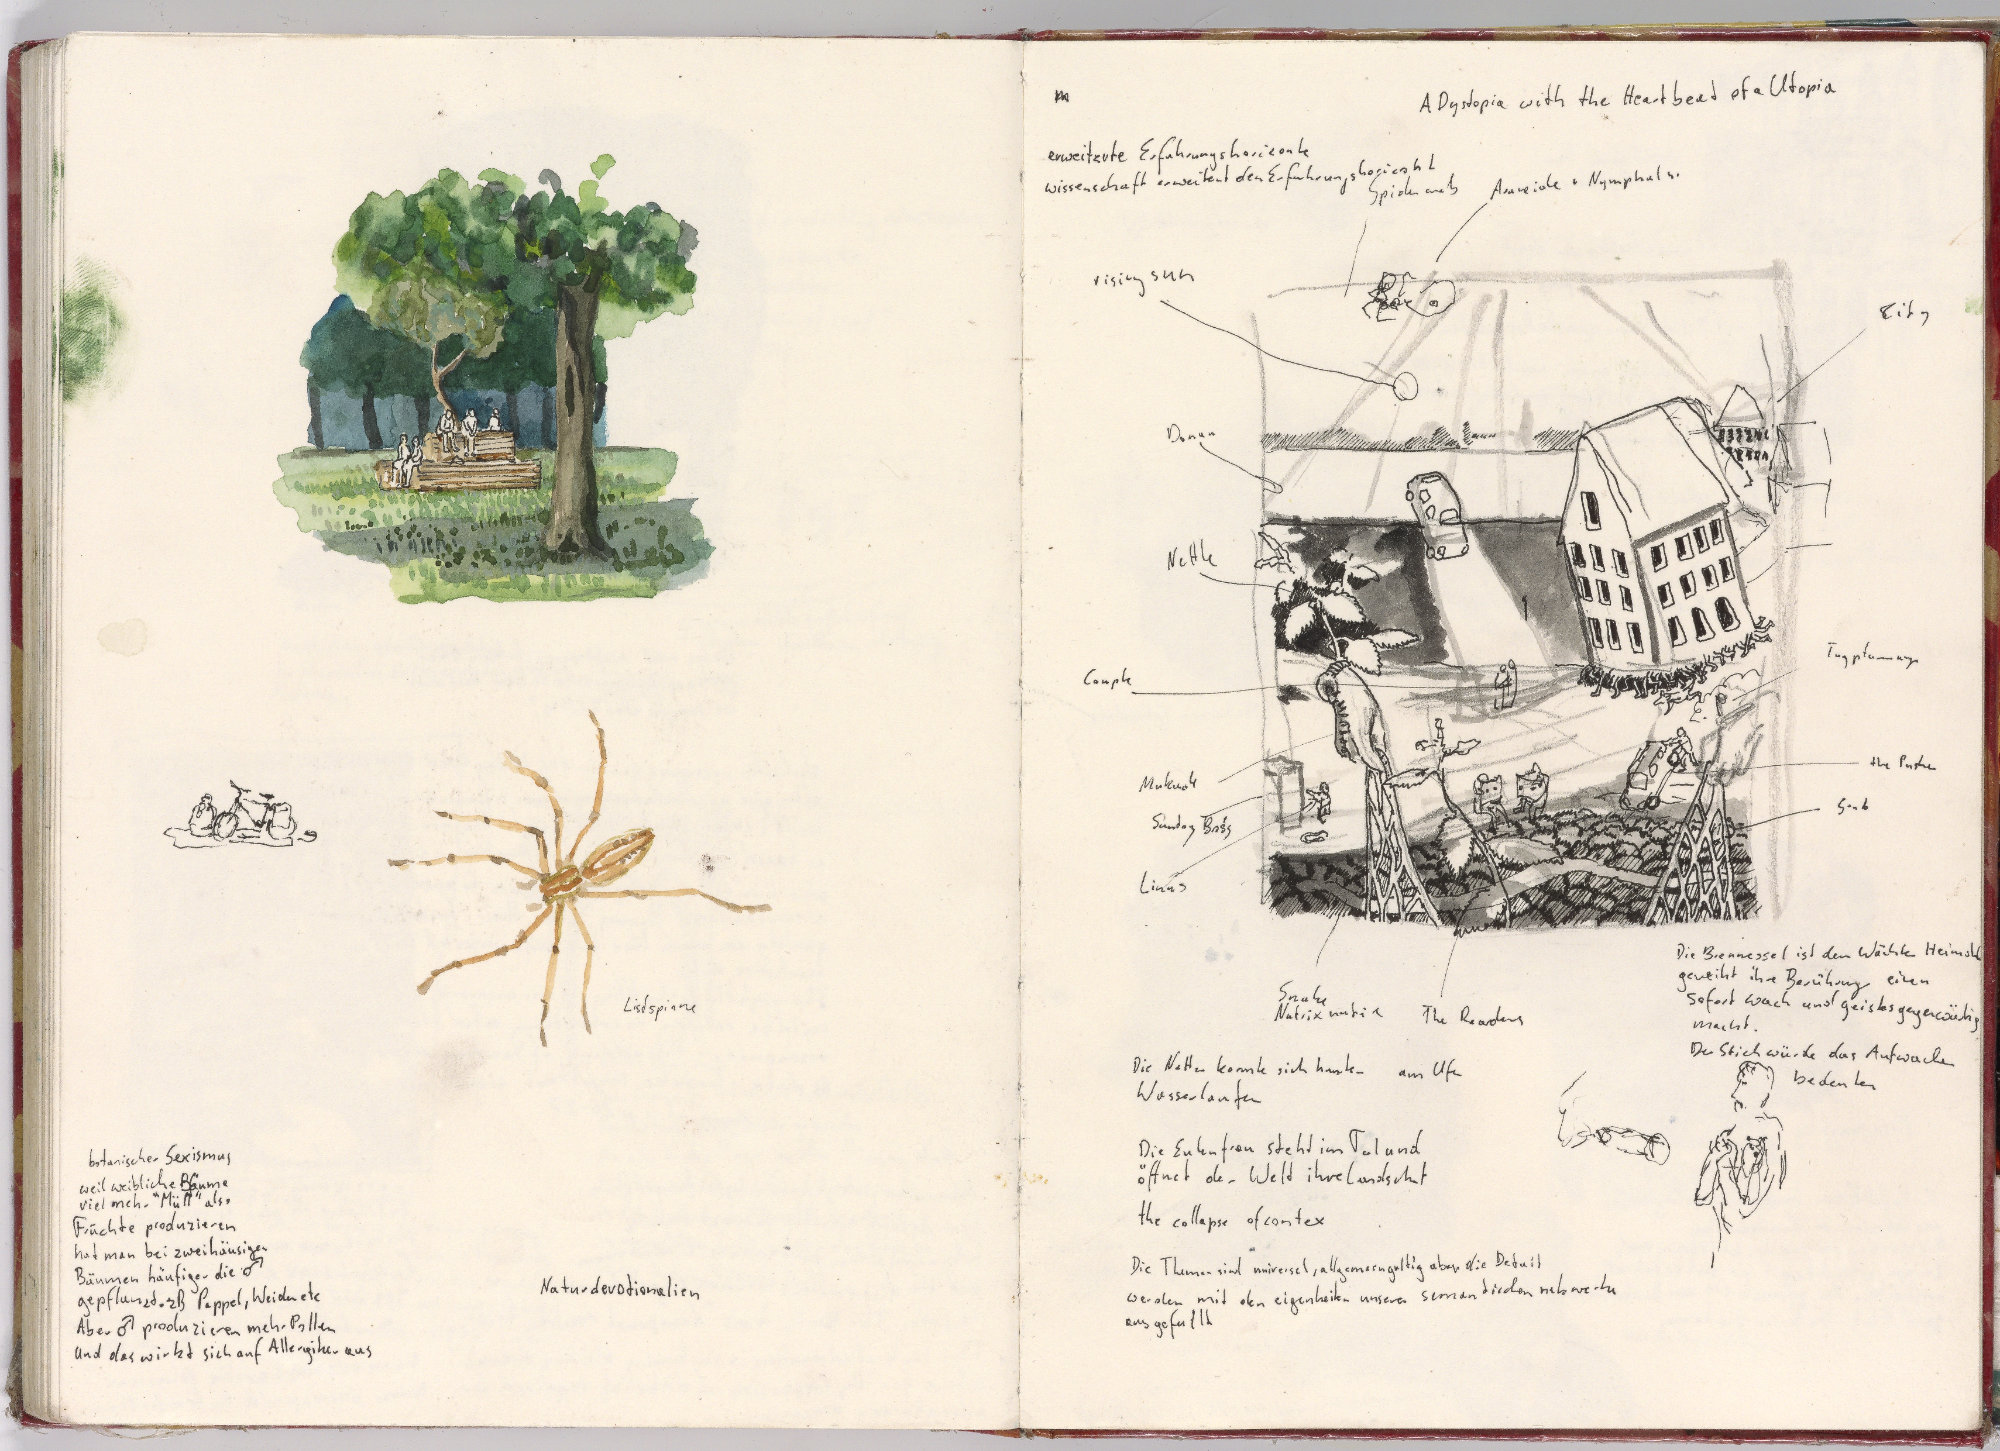 Listspinne
botanischer Sexismus
weil weibliche Bäume
viel mehr "Müll" also
Früchte produzieren
hat man bei zweihäusigen
Bäumen häufiger die ♂
gepflanzt. zB Pappel, Weide etc
Aber ♂ produzieren mehr Pollen
und das wirkt sich auf Allergiker aus
Naturdevotionalien
A Dystopia with the Heartbeat of a Utopia
erweiterte Erfahrungshorizonte
wissenschaft erweitert den Erfahrungshorizont
Spider web
rising sun
City
Donau
Nettle
Couple
Sunday
Linus
the
Snake
Natrix natrix
The Readers
Die Brennessel ist dem Wächter Heimdal
geweiht ihre Berührung einen
sofort wach und geistesgegenwärtig
macht.
Der Stich würde das Aufwachen
bedeuten
am Ufer
Wasserlaufen
steht im Tal und
öffnet der Welt ihre
the collapse of contex
Die Themen sind universel, allgemeingültig aber die Detail
werden mit den eigenheiten unserer semantischen netzwerke
ausgefüllt